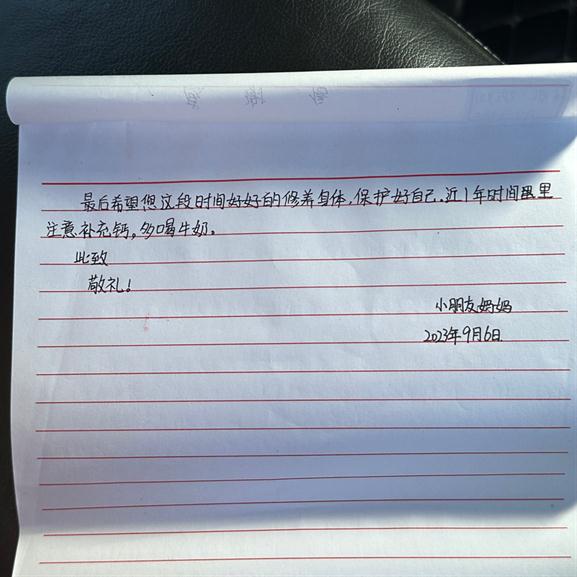 最后希望您这段时间好好的修养身体，保护好自己，近1年时间里
注意补充钙，多喝牛奶。
此致
敬礼！
小朋友妈妈
2023年9月6日